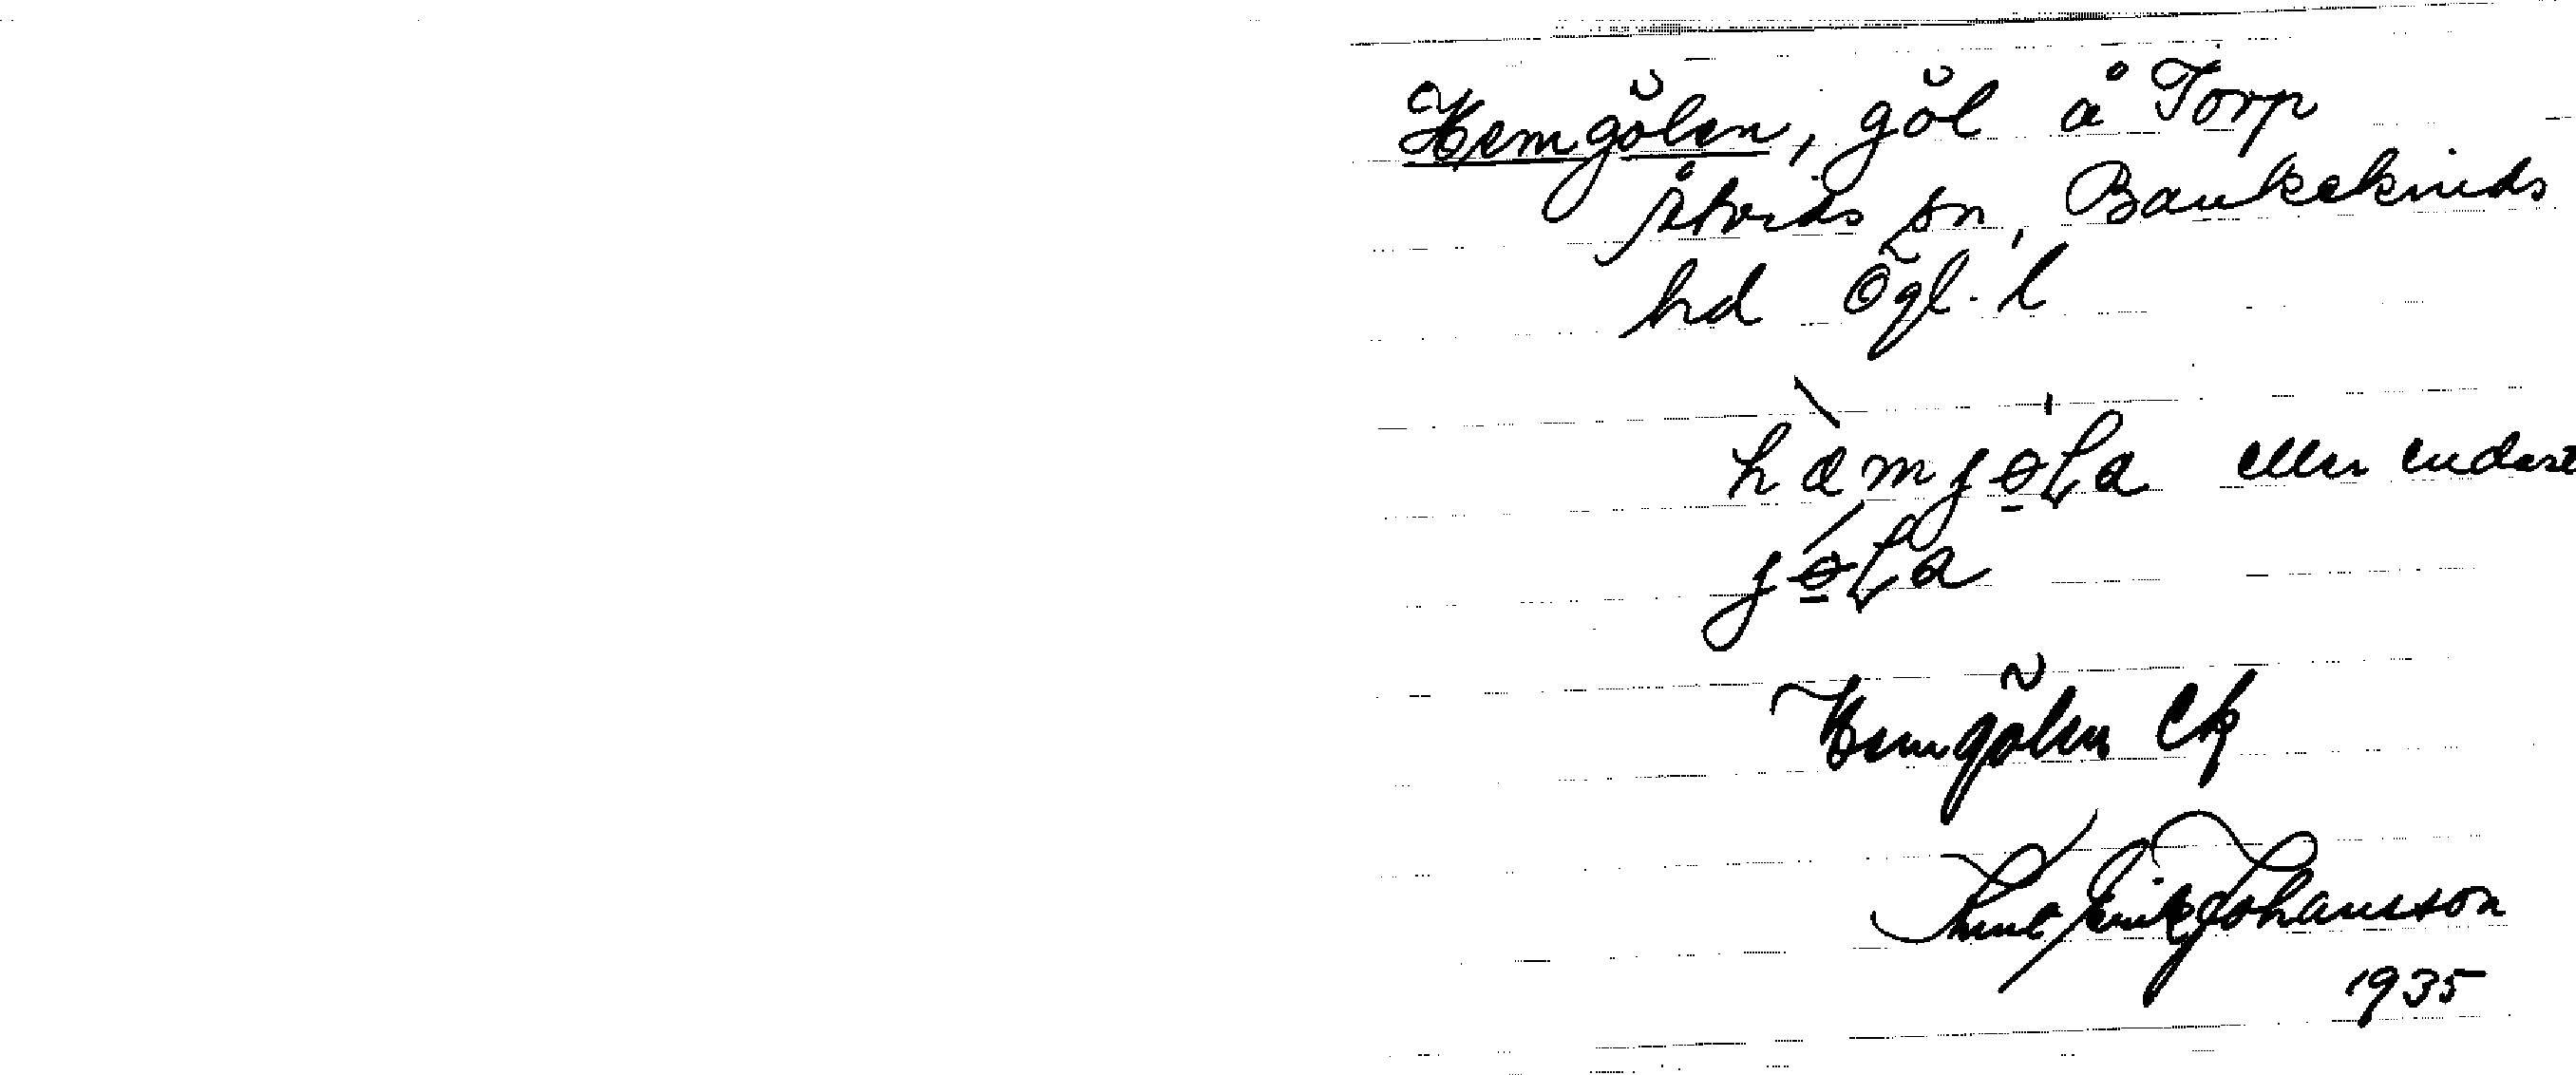 Hemgölen, göl å Torp
Åtvids sn, Bankekinds
hd Ögl. l
hæmgøla eller endast
gøla
Hemgölen Ek
Knut Erik Johansson
1935